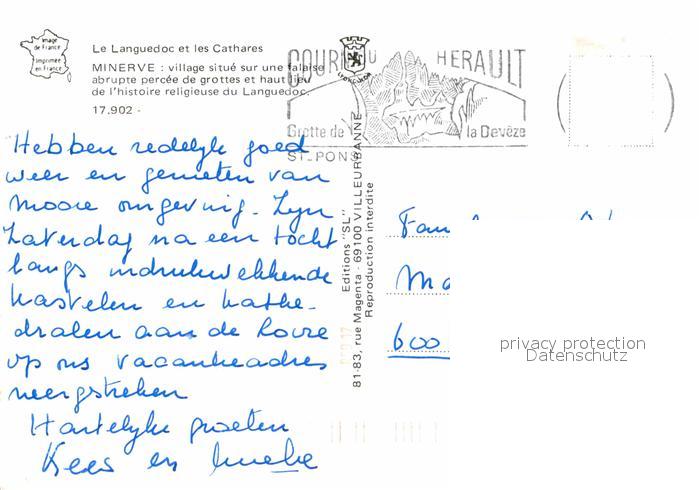 Image
de France
Imprimée
en France
Le Languedoc et les Cathares
MINERVE : village situé sur une falaise
abrupte percée de grottes et haut lieu
de l'histoire religieuse du Languedoc.
17.902 -
HERAULT
Grotte de la Devèze
ST-PONS
Hebben redelijk goed
weer en genieten van
mooie omgeving. Zijn
Zaterdag na een tocht
langs indrukwekkende
kastelen en kathe-
dralen aan de Loire
op ons vacantieadres
neergestreken
Hartelijke groeten
Kees en
Editions "SL"
81-83, rue Magenta - 69100 VILLEURBANNE
Reproduction interdite
Fam
600
privacy protection
Datenschutz